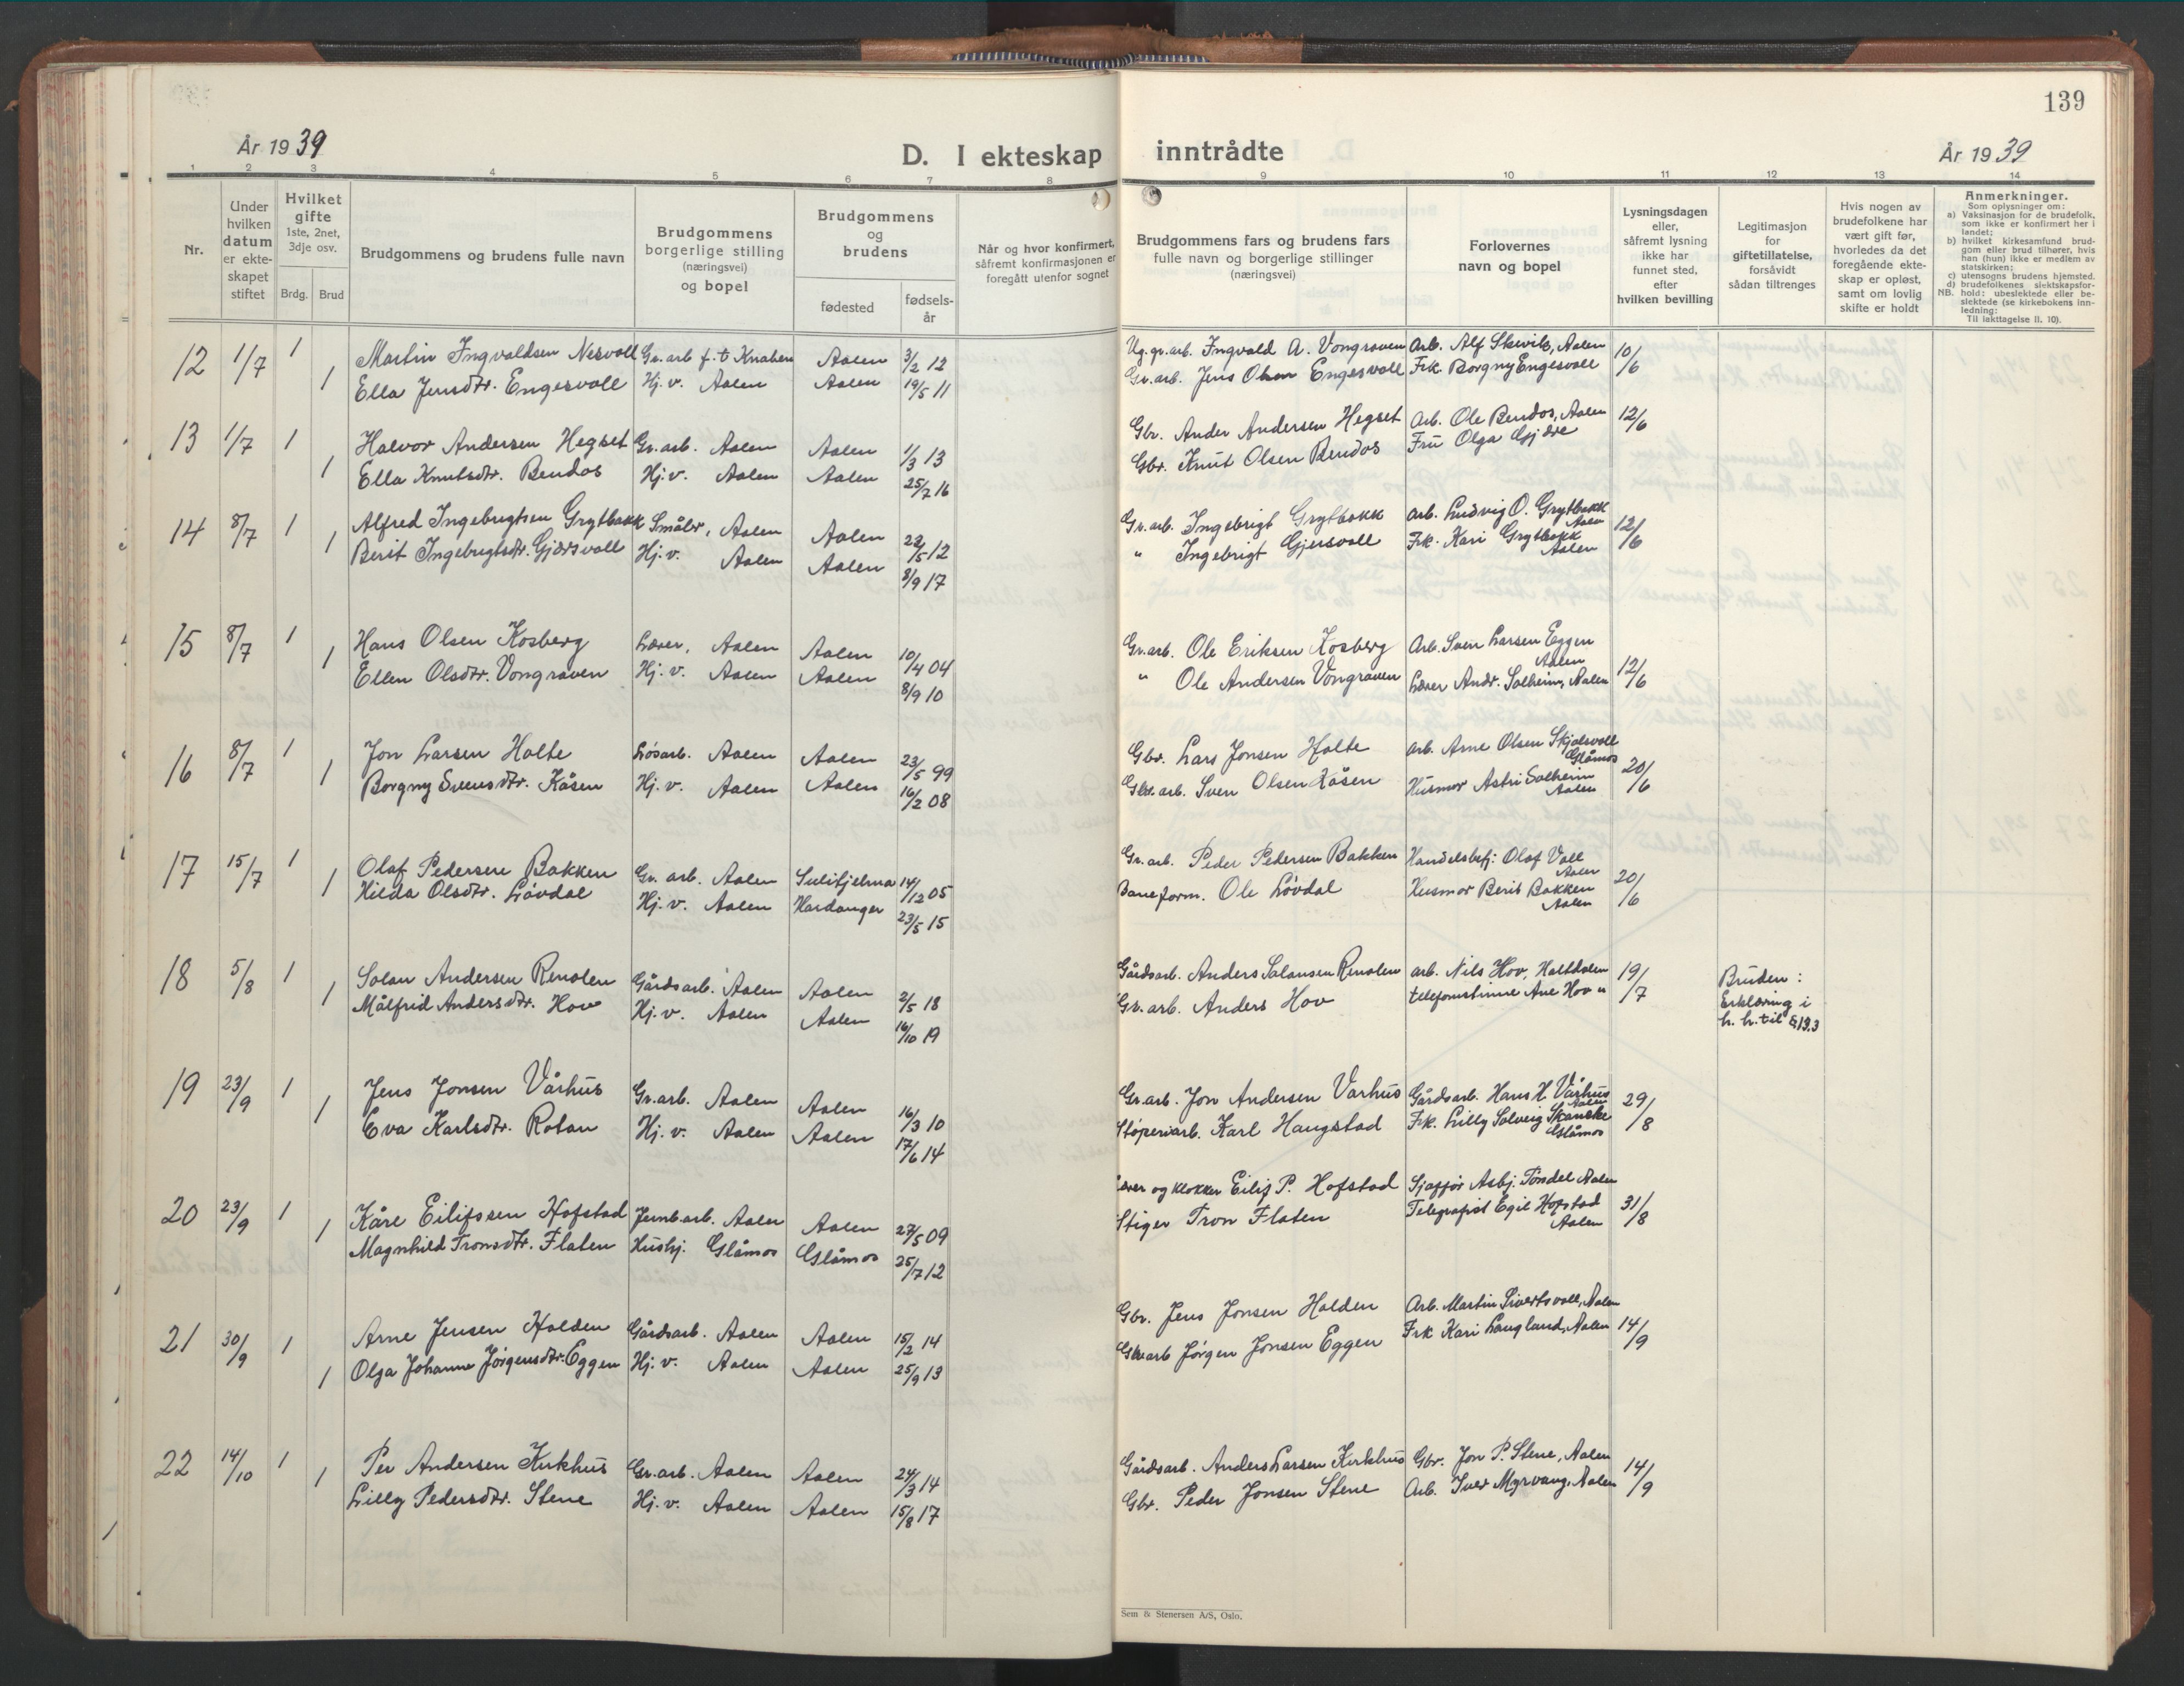 139
År 1939
D. I ekteskap inntrådte
År 1939
1 2 3 4 5 6 7 8 9 10 11 12 13 14
Nr.
Under
hvilken
datum
er ekte-
skapet
stiftet
Hvilket
gifte
1ste, 2net,
3dje osv.
Brdg. Brud
Brudgommens og brudens fulle navn
Brudgommens
borgerlige stilling
(næringsvei)
og bopel
Brudgommens
og
brudens
fødested
fødsels-
år
Når og hvor konfirmert,
såfremt konfirmasjonen er
foregått utenfor sognet
Brudgommens fars og brudens fars
fulle navn og borgerlige stillinger
(næringsvei)
Forlovernes
navn og bopel
Lysningsdagen
eller,
såfremt lysning
ikke har
funnet sted,
efter
hvilken bevilling
Legitimasjon
for
giftetillatelse,
forsåvidt
sådan tiltrenges
Hvis nogen av
brudefolkene har
vært gift før,
hvorledes da det
foregående ekte-
skap er opløst,
samt om lovlig
skifte er holdt
Anmerkninger.
Som oplysninger om:
a) Vaksinasjon for de brudefolk,
som ikke er konfirmert her i
landet;
b) hvilket kirkesamfund brud-
gom eller brud tilhører, hvis
han (hun) ikke er medlem av
statskirken;
c) utensogns brudens hjemsted.
d) brudefolkenes slektskapsfor-
NB. hold: ubeslektede eller be-
slektede (se kirkebokens inn-
ledning:
Til iakttagelse II. 10).
12 1/7 1 Martin Ingvaldsen Nesvoll Gr. arb f. t Knaben Aalen 3/2 12 Ug. gr. arb. Ingvald A. Vongraven Arb. Alf Skevik, Aalen 10/6
1 Ella Jensdtr. Engesvoll Hj. v. Aalen Aalen 19/5 11 Gr. arb. Jens Olsen Engesvoll Frk. Borgny Engesvoll
13 1/7 1 Halvor Andersen Hegset Gr. arb. Aalen Aalen 1/3 13 Gbr. Ander Andersen Hegset Arb. Ole Bendos, Aalen 12/6
1 Ella Knutsdtr. Bendos Hj. v. Aalen Aalen 25/7 16 Gbr. Knut Olsen Bendos Fru Olga Gjære
14 8/7 1 Alfred Ingebrigtsen Grytbakk Småbr, Aalen Aalen 22/5 12 Gr. arb. Ingebrigt Grytbakk Arb. Ludvig O. Grytbakk Aalen 12/6
1 Berit Ingebrigtsdtr. Gjersvoll Hj. v. Aalen Aalen 8/9 17 " Ingebrigt Gjersvoll Frk. Kari Grytbakk Aalen
15 8/7 1 Hans Olsen Kosberg Lærer, Aalen Aalen 10/4 04 Gr. arb. Ole Eriksen Kosberg Arb. Sven Larsen Eggen Aalen
1 Ellen Olsdtr. Vongraven Hj. v. Aalen Aalen 8/9 10 " Ole Andersen Vongraven Lærer Andr. Solheim, Aalen 12/6
16 8/7 1 Jon Larsen Holte Løsarb. Aalen Aalen 23/5 99 Gbr. Lars Jonsen Holte Arb. Arne Olsen Skjolsvoll Glåmos 20/6
1 Borgny Svensdtr. Kåsen Hj. v. Aalen Aalen 16/2 08 Gbr. arb. Sven Olsen Kåsen Husmor Astri Solheim Aalen
17 15/7 1 Olaf Pedersen Bakken Gr. arb. Aalen Sulitjelma 14/12 05 Gr. arb. Peder Pedersen Bakken Handelsbtj: Olaf Voll Aalen 20/6
1 Hilda Olsdtr. Løvdal Hj. v. Aalen Hardanger 23/5 15 Baneform. Ole Løvdal Husmor Berit Bakken Aalen
18 5/8 1 Solan Andersen Renolen Gårdsarb. Aalen Aalen 2/5 18 Gårdsarb. Anders Solansen Renolen arb. Nils Hov, Haltdalen 19/7 Bruden:
1 Målfrid Andersdtr. Hov Hj. v. Aalen Aalen 16/10 19 Gr. arb. Anders Hov telefonistinne Ane Hov " Erklæring i
h. h. til § 13.3
19 23/9 1 Jens Jonsen Vårhus Gr. arb. Aalen Aalen 16/3 10 Gr. arb. Jon Andersen Varhus Gårdsarb. Hans H. Vårhus Aalen 29/8
1 Eva Karlsdtr. Rotan Hj. v. Aalen Aalen 17/6 14 Støperiarb. Karl Haugstad Frk. Lilly Solveig Skancke Glåmos
20 23/9 1 Kåre Eilifssen Hofstad Jernb. arb. Aalen Aalen 27/5 09 Lærer og klokker Eilif P. Hofstad Sjafför Asbj. Tøndel Aalen 31/8
1 Magnhild Tronsdtr. Flaten Hushj. Glåmos Glåmos 25/7 12 Stiger Tron Flaten Telegrafist Egil Hofstad Aalen
21 30/9 1 Arne Jensen Holden Gårdsarb. Aalen Aalen 15/2 14 Gbr. Jens Jonsen Holden Arb. Martin Sivertsvoll, Aalen 14/9
1 Olga Johanne Jørgensdtr. Eggen Hj. v. Aalen Aalen 25/9 13 Gbr. arb Jørgen Jonsen Eggen Frk Kari Langland, Aalen
22 14/10 1 Per Andersen Kirkhus Gr. arb. Aalen Aalen 24/3 14 Gårdsarb. Anders Larsen Kirkhus Gbr. Jon P. Stene, Aalen 14/9
1 Lilly Pedersdtr. Stene Hj. v. Aalen Aalen 15/8 17 Gbr. Peder Jonsen Stene Arb. Iver Myrvang, Aalen
Sem & Stenersen A/S, Oslo.